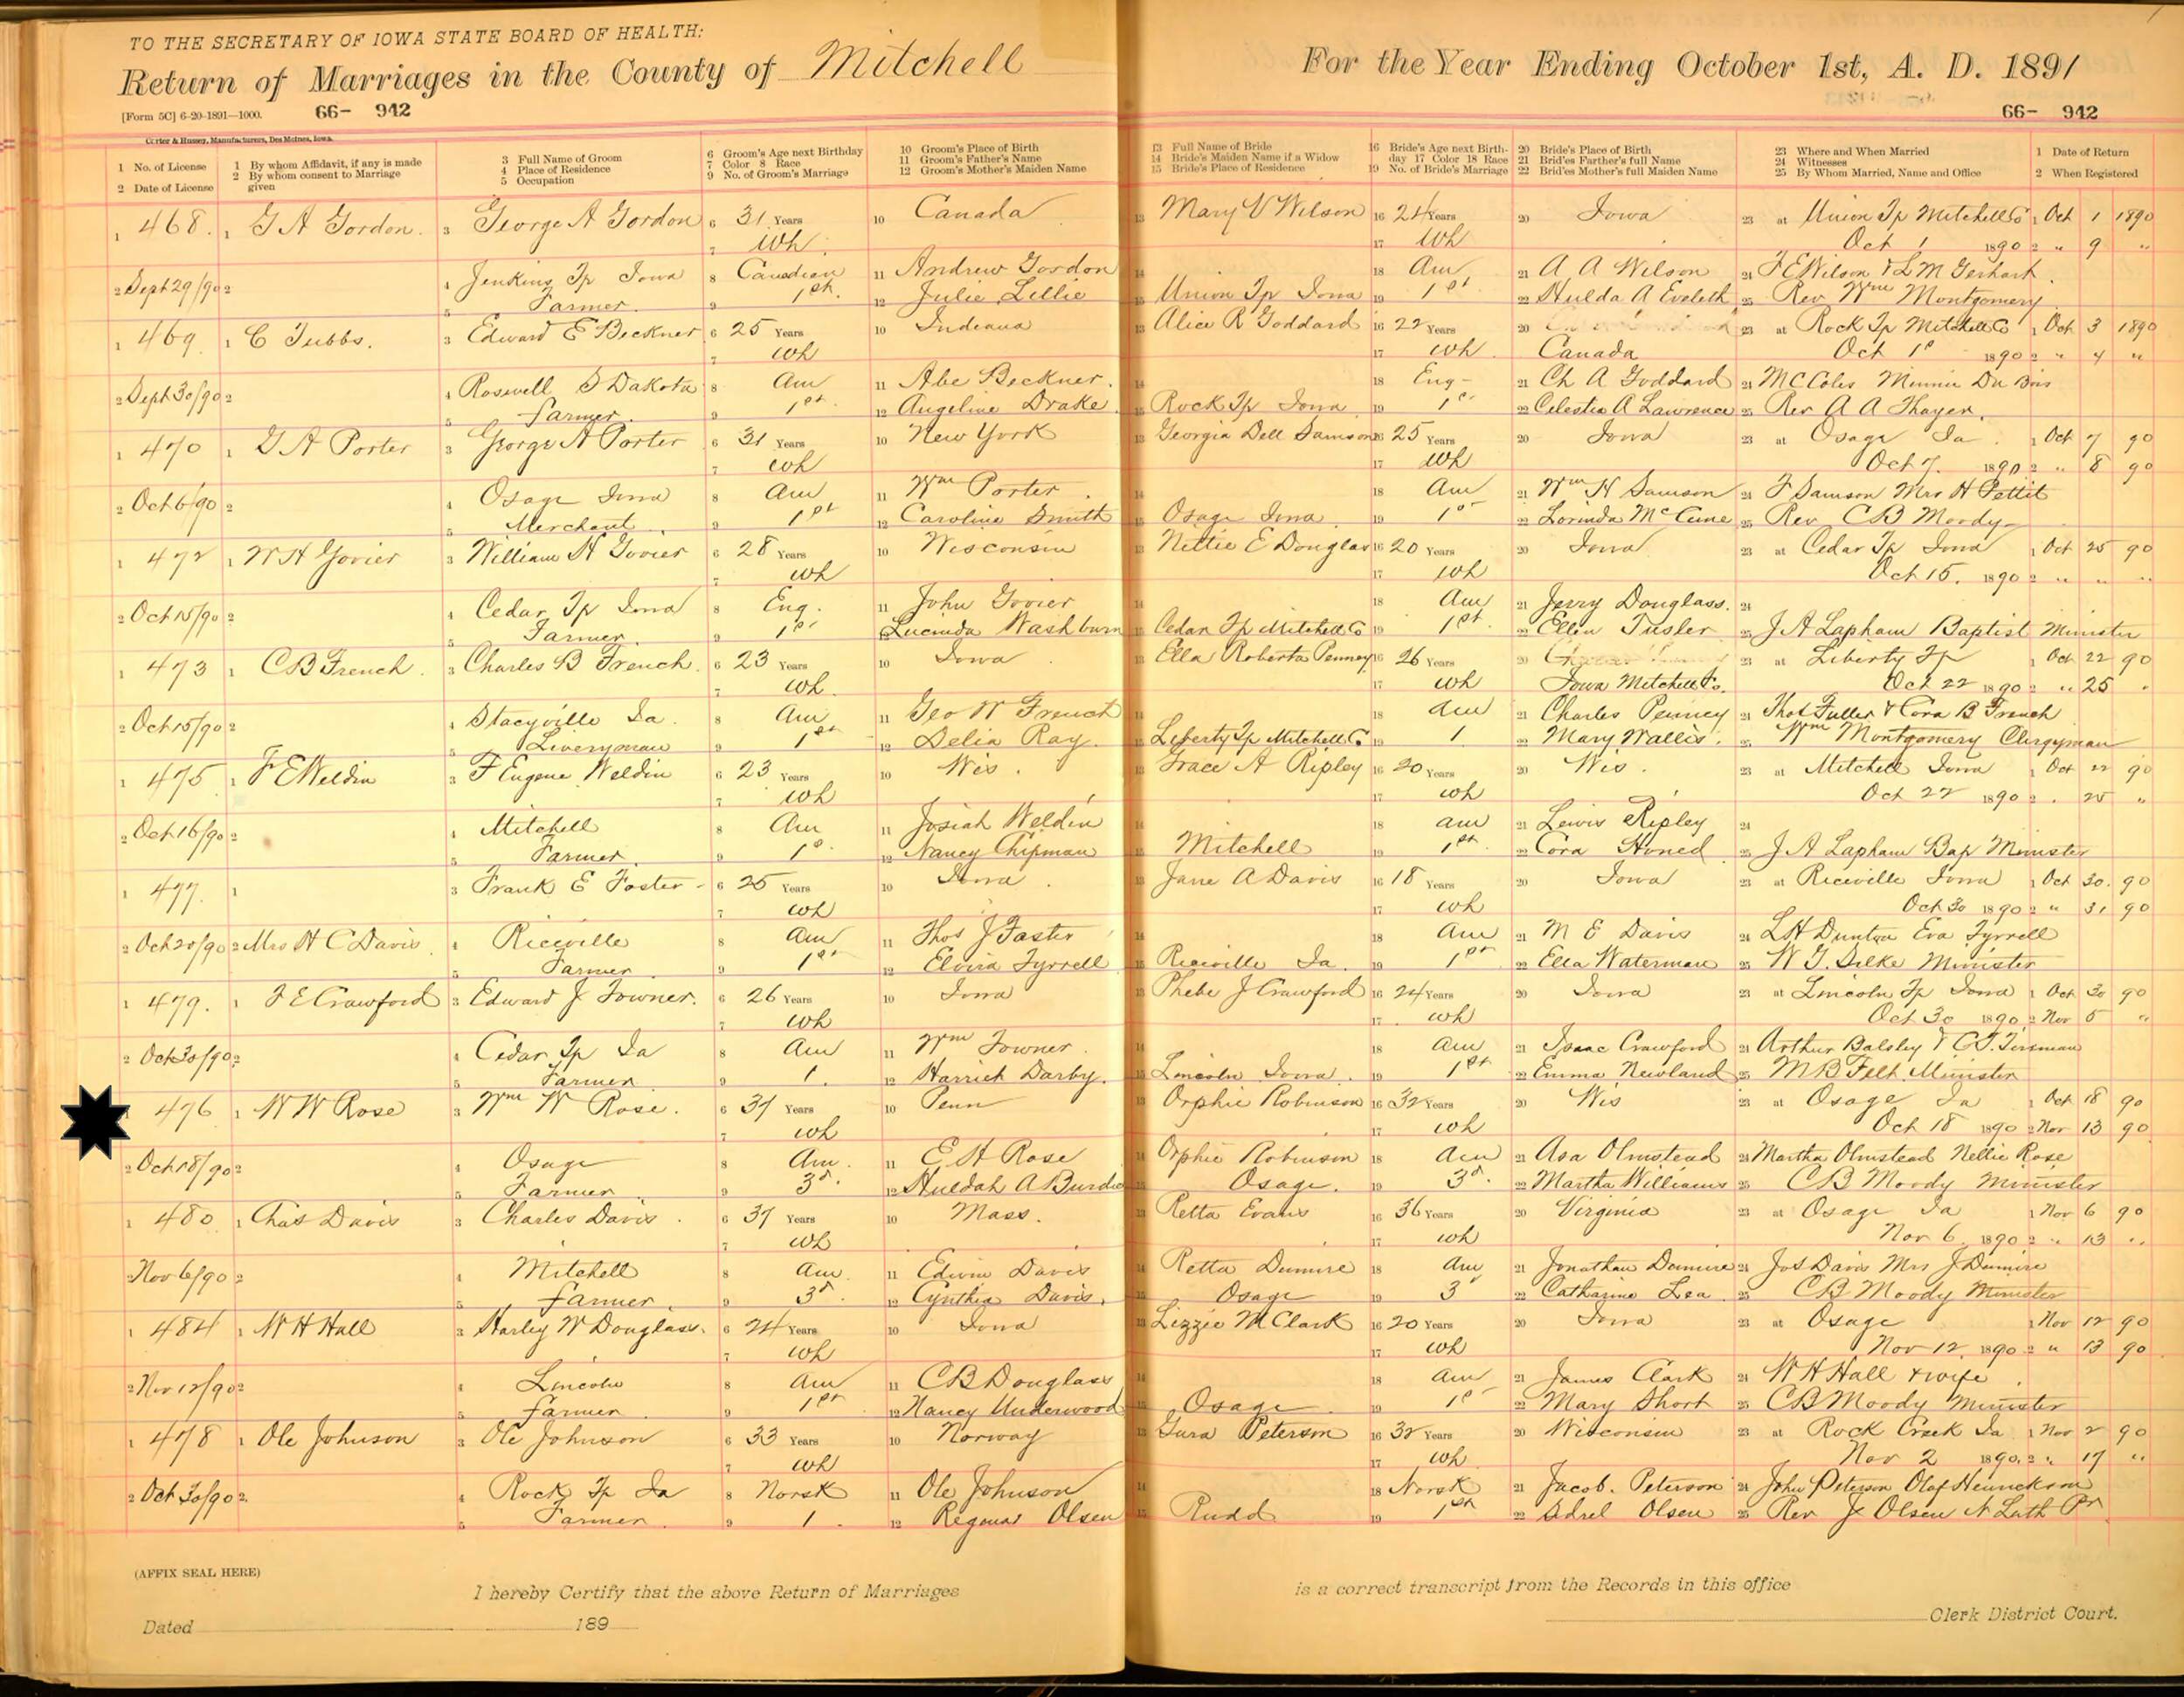 TO THE SECRETARY OF IOWA STATE BOARD OF HEALTH:
Return of Marriages in the County of Mitchell
For the Year Ending October 1st, A. D. 1891
[Form 5C] 6-20-1891—1000.
66- 942
66- 942
Carter & Hussey, Manufacturers, Des Moines, Iowa.
1 No. of License
2 Date of License
1 By whom Affidavit, if any is made
2 By whom consent to Marriage given
3 Full Name of Groom
4 Place of Residence
5 Occupation
6 Groom's Age next Birthday
7 Color 8 Race
9 No. of Groom's Marriage
10 Groom's Place of Birth
11 Groom's Father's Name
12 Groom's Mother's Maiden Name
13 Full Name of Bride
14 Bride's Maiden Name if a Widow
15 Bride's Place of Residence
16 Bride's Age next Birth-
day 17 Color 18 Race
19 No. of Bride's Marriage
20 Bride's Place of Birth
21 Brid'es Farther's full Name
22 Brid'es Mother's full Maiden Name
23 Where and When Married
24 Witnesses
25 By Whom Married, Name and Office
1 Date of Return
2 When Registered
1 468. 1 G A Gordon. 3 George A Gordon 6 31 Years 10 Canada 13 Mary V Wilson 16 24 Years 20 Iowa 23 at Union Tp Mitchell Co 1 Oct 1 1890
7 Wh. 17 Wh Oct 1 1890 2 " 9 "
2 Sept 29/90 2 4 Jenkins Tp Iowa 8 Canadian 11 Andrew Gordon 14 18 Am 21 A A Wilson 24 F E Wilson & L M Gerhart
5 Farmer 9 1st. 12 Julie Lillie 15 Union Tp Iowa 19 1st 22 Hulda A Eveleth 25 Rev Wm Montgomery
1 469 1 C Tubbs. 3 Edward E Beckner 6 25 Years 10 Indiana 13 Alice R Goddard 16 22 Years 20 23 at Rock Tp Mitchell Co 1 Oct 3 1890
7 Wh 17 Wh Canada Oct 1st 1890 2 " 4 "
2 Sept 30/90 2 4 Roswell S Dakota 8 Am 11 Abe Beckner. 14 18 Eng- 21 Ch A Goddard 24 M C Coles Minnie Du Bois
5 Farmer 9 1st 12 Angeline Drake 15 Rock Tp Iowa 19 1st 22 Celestia A Lawrence 25 Rev A A Thayer.
1 470 1 G A Porter 3 George A Porter 6 31 Years 10 New York 13 Georgia Dell Samson 16 25 Years 20 Iowa 23 at Osage Ia. 1 Oct 7 90
7 Wh 17 Wh Oct 7. 1890 2 " 8 90
2 Oct 6/90 2 4 Osage Iowa 8 Am 11 Wm Porter 14 18 Am 21 Wm H Samson 24 F Samson Mrs H Pettit
5 Merchant 9 1st 12 Caroline Smith 15 Osage Iowa 19 1st 22 Lorinda McCune 25 Rev C B Moody
1 472 1 W H Govier 3 William H Govier 6 28 Years 10 Wisconsin 13 Nettie E Douglas 16 20 Years 20 Iowa 23 at Cedar Tp Iowa 1 Oct 25 90
7 Wh 17 Wh Oct 15. 1890 2 " " "
2 Oct 15/90 2 4 Cedar Tp Iowa 8 Eng. 11 John Govier 14 18 Am 21 Jerry Douglass. 24
5 Farmer 9 1st 12 Lucinda Washburn 15 Cedar Tp Mitchell Co 19 1st. 22 Ellen Tusler 25 J A Lapham Baptist Minister
1 473 1 C B French. 3 Charles B French. 6 23 Years 10 Iowa 13 Ella Roberta Penney 16 26 Years 20 23 at Liberty Tp 1 Oct 22 90
7 Wh. 17 Wh Iowa Mitchell Co. Oct 22 1890 2 " 25 "
2 Oct 15/90 2 4 Stacyville Ia. 8 Am 11 Geo W French 14 18 Am 21 Charles Penney 24 Thos Fuller & Cora B French
5 Liveryman 9 1st 12 Delia Ray. 15 Liberty Tp Mitchell Co 19 1 22 Mary Wallis. 25 Wm Montgomery Clergyman
1 475 1 F E Weldin 3 F Eugene Weldin 6 23 Years 10 Wis. 13 Grace A Ripley 16 20 Years 20 Wis. 23 at Mitchell Iowa 1 Oct 22 90
7 Wh 17 Wh Oct 22 1890 2 " 25 "
2 Oct 16/90 2 4 Mitchell 8 Am 11 Josiah Weldin 14 18 Am 21 Lewis Ripley 24
5 Farmer 9 1st. 12 Nancy Chipman 15 Mitchell 19 1st 22 Cora Honed 25 J A Lapham Bap Minister
1 477. 1 3 Frank E Foster 6 25 Years 10 Iowa. 13 Jane A Davis 16 18 Years 20 Iowa 23 at Riceville Iowa 1 Oct 30. 90
7 Wh 17 Wh Oct 30 1890 2 " 31 90
2 Oct 20/90 2 Mrs H C Davis 4 Riceville 8 Am 11 Thos J Foster 14 18 Am 21 M E Davis 24 L H Dunton Eva Tyrrell
5 Farmer 9 1st 12 Elvira Tyrrell 15 Riceville Ia. 19 1st 22 Ella Waterman 25 W G. Silke Minister
1 479. 1 J E Crawford 3 Edward J Towner. 6 26 Years 10 Iowa 13 Phebe J Crawford 16 24 Years 20 Iowa 23 at Lincoln Tp Iowa 1 Oct 30 90
7 Wh 17 Wh Oct 30 1890 2 Nov 5 "
2 Oct 30/90 2 4 Cedar Tp Ia 8 Am 11 Wm Towner. 14 18 Am 21 Isaac Crawford 24 Arthur Balsley &
5 Farmer 9 1. 12 Harriet Darby. 15 Lincoln Iowa. 19 1st 22 Emma Newland 25 M B Felt Minister
1 476 1 W W Rose 3 Wm W Rose. 6 37 Years 10 Penn 13 Orphie Robinson 16 32 Years 20 Wis 23 at Osage Ia 1 Oct 18 90
7 Wh 17 Wh Oct 18 1890 2 Nov 13 90
2 Oct 18/90 2 4 Osage 8 Am. 11 E H Rose 14 Orphie Robinson 18 Am 21 Asa Olmstead 24 Martha Olmstead Nellie Rose
5 Farmer 9 3d. 12 Huldah A Burdic 15 Osage. 19 3d. 22 Martha Williams 25 C B Moody Minister
1 480 1 Chas Davis 3 Charles Davis. 6 37 Years 10 Mass. 13 Retta Evans 16 36 Years 20 Virginia 23 at Osage Ia 1 Nov 6 90
7 Wh 17 Wh Nov 6. 1890 2 " 13 "
2 Nov 6/90 2 4 Mitchell 8 Am. 11 Edwin Davis 14 Retta Dumire 18 Am 21 Jonathan Dumire 24 Jos Davis Mrs J Dumire
5 Farmer. 9 3d. 12 Cynthia Davis. 15 Osage 19 3d 22 Catharine Lea 25 C B Moody Minister
1 484 1 W H Hall 3 Harley W Douglass. 6 24 Years 10 Iowa 13 Lizzie M Clark 16 20 Years 20 Iowa 23 at Osage 1 Nov 12 90
7 Wh 17 Wh Nov 12. 1890 2 " 13 90
2 Nov 12/90 2 4 Lincoln 8 Am 11 C B Douglass 14 18 Am 21 James Clark 24 W H Hall & wife
5 Farmer 9 1st 12 Nancy Underwood 15 Osage 19 1st 22 Mary Short 25 C B Moody Minister
1 478 1 Ole Johnson 3 Ole Johnson 6 33 Years 10 Norway 13 Gura Peterson 16 32 Years 20 Wisconsin 23 at Rock Creek Ia 1 Nov 2 90
7 Wh 17 Wh Nov 2 1890. 2 " 17 "
2 Oct 30/90 2. 4 Rock Tp Ia 8 Norsk 11 Ole Johnson 14 18 Norsk 21 Jacob. Peterson 24 John Peterson Olaf
5 Farmer 9 1. 12 Olsen 15 Rudd 19 1st 22 Olsen 25 Rev J Olsen N Luth Pr
(AFFIX SEAL HERE)
I hereby Certify that the above Return of Marriages is a correct transcript from the Records in this office
Dated 189
Clerk District Court.